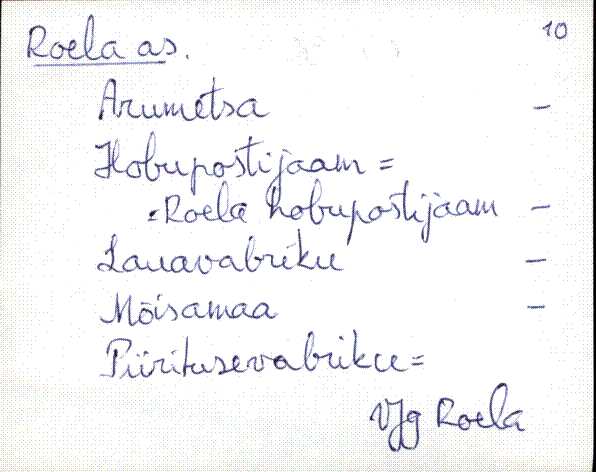 Roela as. 10
Arumetsa –
Hobupostijaam =
=Roela hobupostijaam –
Lauavabriku –
Mõisamaa –
Piiritusevabriku=
VJg Roela